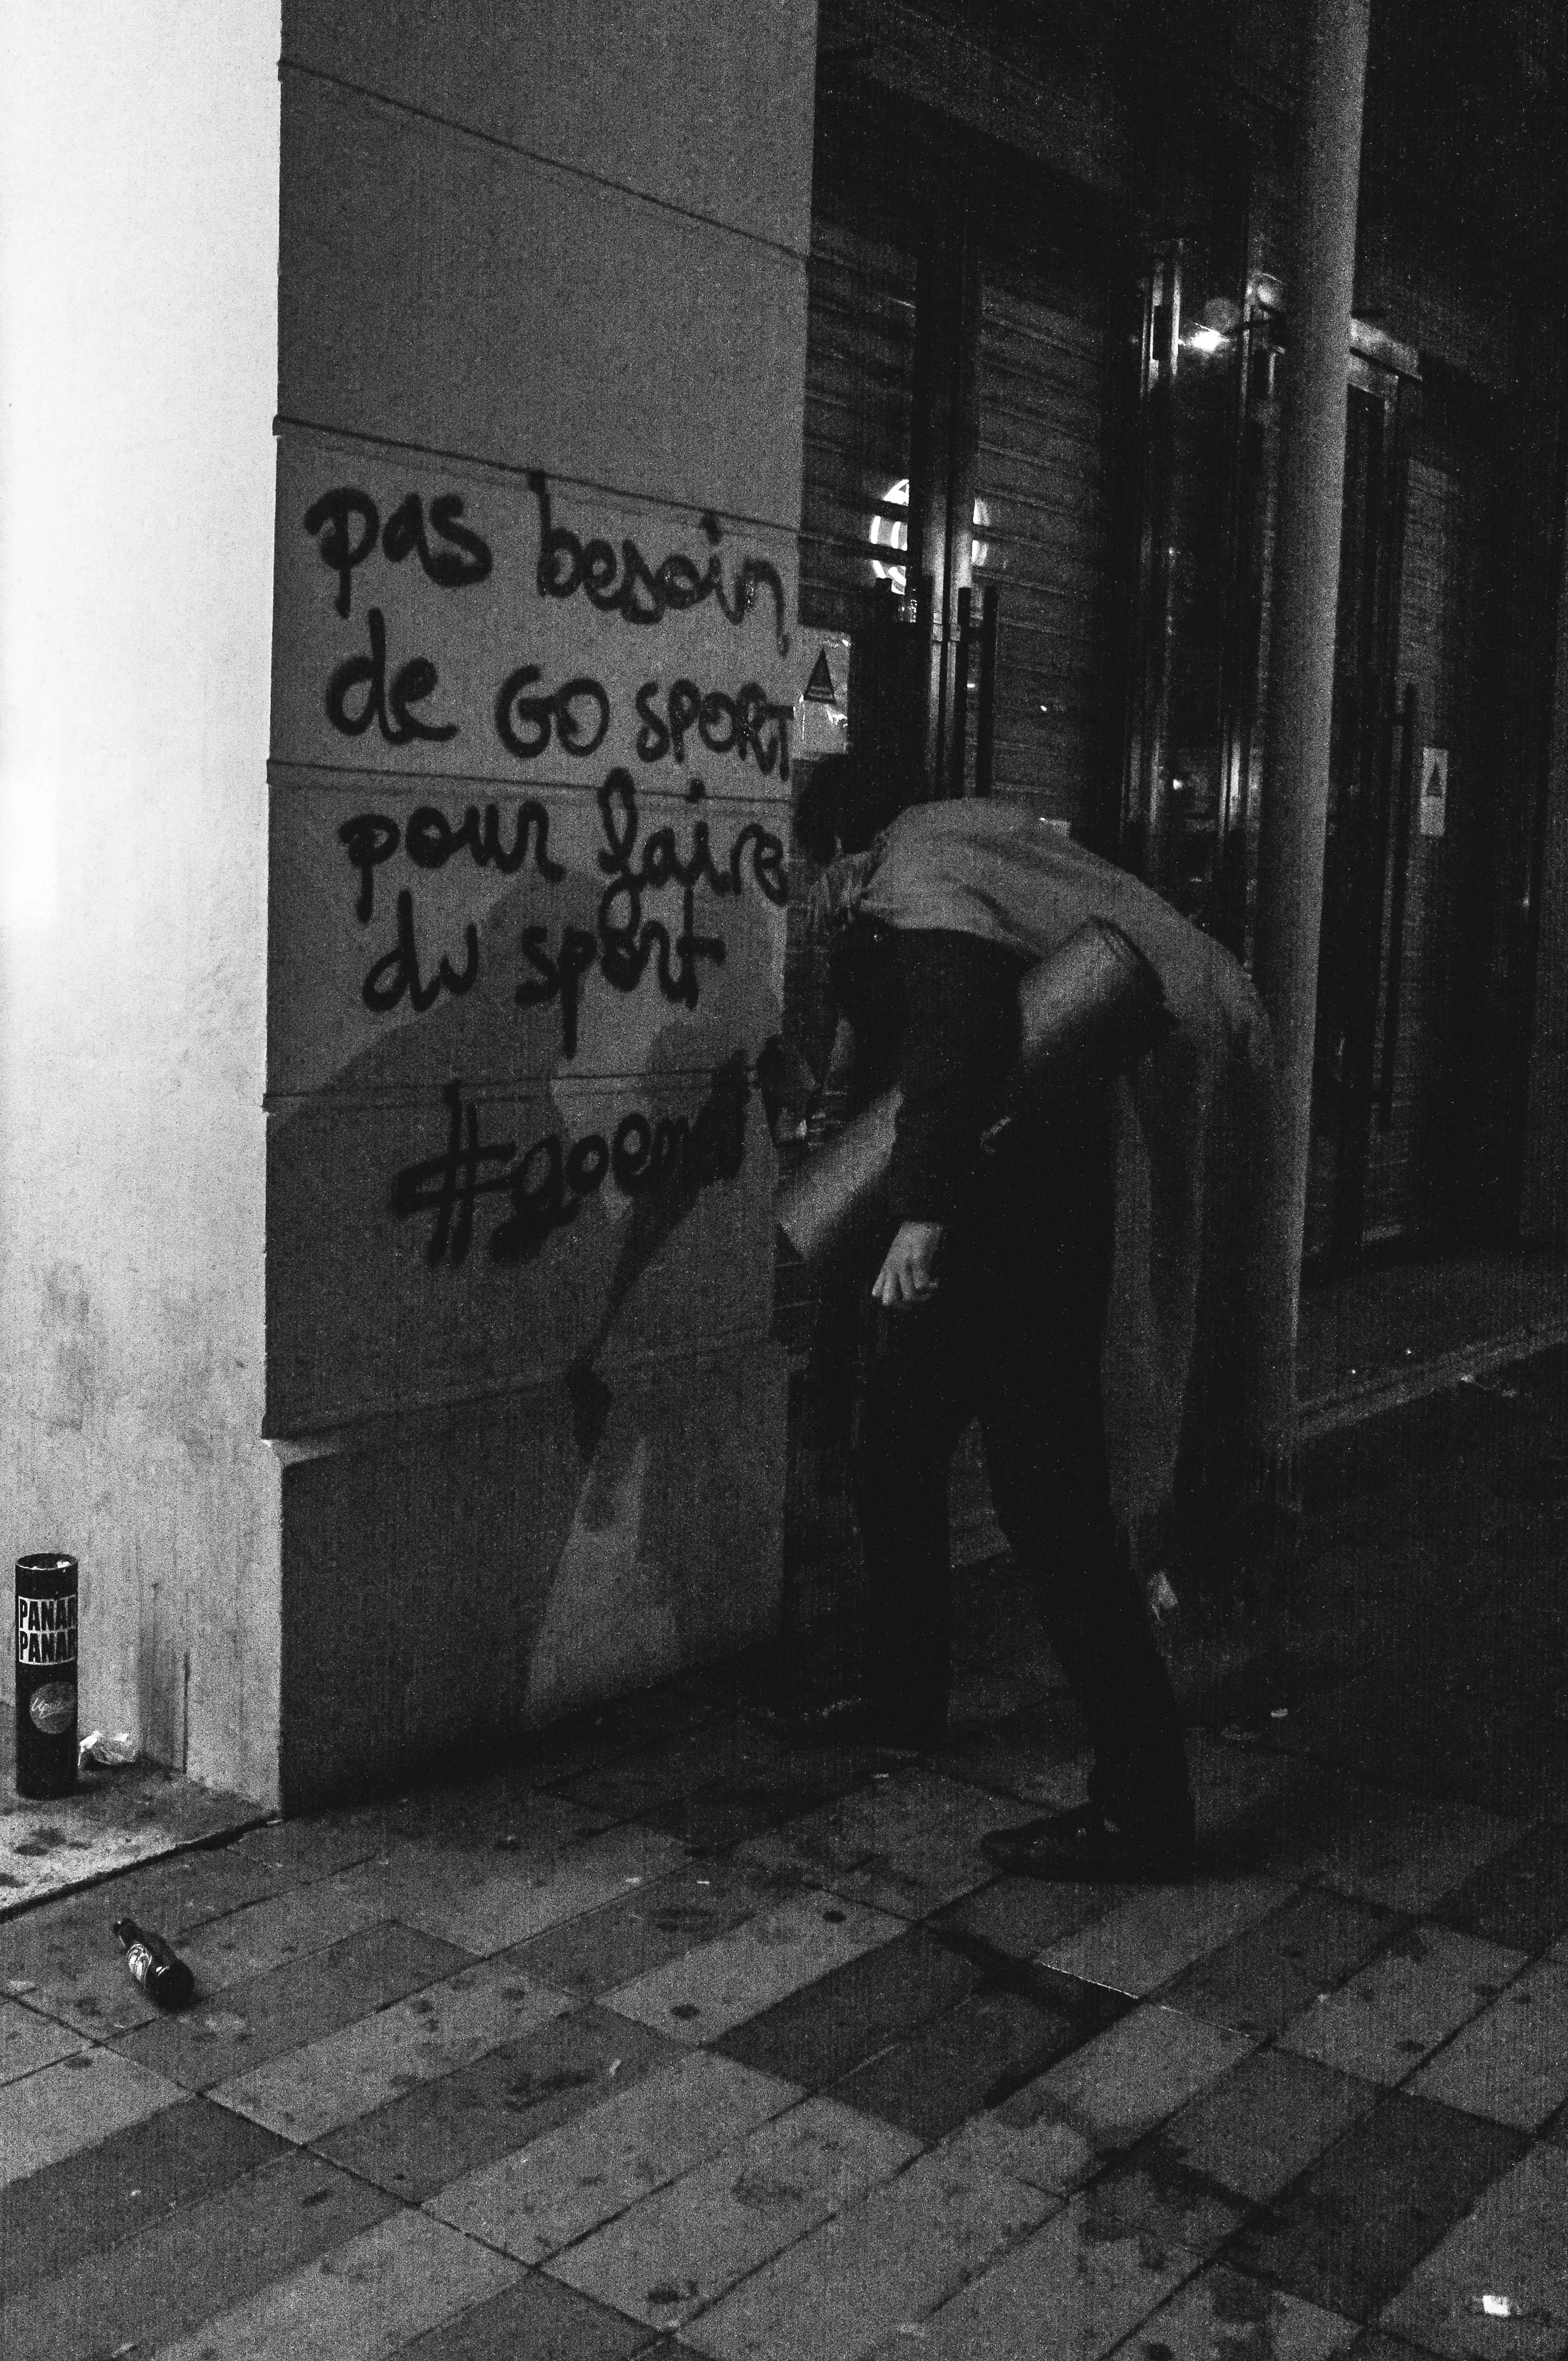 pas besoin
de GO SPORT
pour faire
du sport
PANAM
PANAM